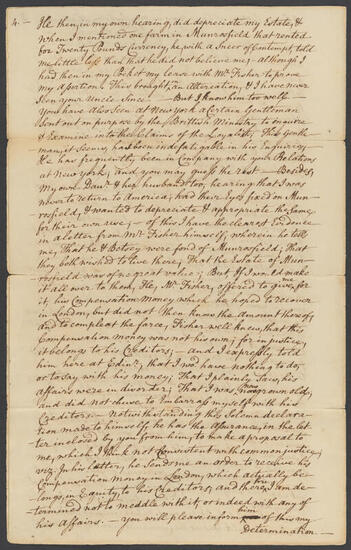 4.— He then, in my own hearing, did depreciate my Estate, &
When I mentioned one farm in Munrosfield that rented
for Twenty Pounds Currency, he, with a Sneer of Contempt, told
me little less than that he did not believe me,— although I
had then in my Pocket my lease with Mr. Fisher to prove
my Assertion. This brought an altercation, & I have never
Seen your Uncle Since — But I know him too well —
You have also Seen at New York a Certain gentleman
Sent out on purpose by the Brittish Ministry, to enquire
& Examine into the Claims of the Loyalists; This Gentle-
man, it Seems, has been indefatigable in his Enquiries,
& He has frequently been in Company with your Relations
at New York; and you may guess the rest — Besides,
My own Daur. & her husband too, hearing that I was
never to return to America, had their Eyes fixed on Munros-
field, & wanted to depreciate & appropriate the same
for their own use; of this I have the clearest Evidence
in a letter from Mr. Fisher himself, wherein he told
me, That he & Betsey were fond of Munrosfield; That
they both wished to live there; That the Estate of Mun-
rosfield was of no great value; But If I wou'd make
it all over to them, He, Mr. Fisher, offered to give me for
it, his Compensation Money which he hoped to recover
in London, but did not then know the Amount thereof;
And to compleat the farce, Fisher well knew, that this
Compensation money was not his own; for in justice,
it belongs to his Creditors;— and I expressly told
him here at Edinr., that I wou'd have nothing to do,
or to say with his money; That I plainly Saw, his
affairs were in disorder; That I was now grown old,
and did not chuse to Embarrass myself with his
Creditors.— Notwithstanding this Solemn declara-
tion made to himself, he has the Assurance, in the let-
ter inclosed by you from him, to make a proposal to
me, which I think not Consistent with common justice,
viz. In his letter, he Sends me an order to receive his
Compensation money in London, which actually be-
longs, in Equity, to his Creditors; and therefore, I am de-
termined not to meddle with it, or indeed with any of
his Affairs. — you will please inform him of this my
Determination —